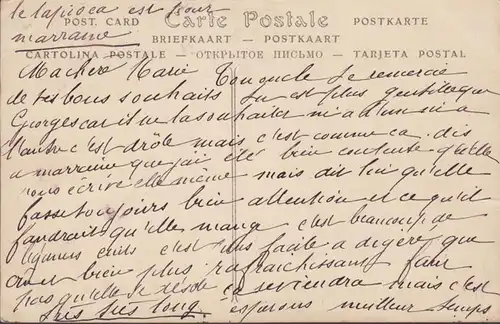 le tapioca est pour
marraine
POST CARD Carte Postale POSTKARTE
BRIEFKAART - POSTKAART
CARTOLINA POSTALE - ОТКРЫТОЕ ПИСЬМО - TARJETA POSTAL
Ma chere Marie Ton oncle te remercie
de tes bons souhaits tu est plus gentille que
Georges car il ne la souhaiter ni a l'un ni a
l'autre c'est drôle mais c'est comme ca. dis
a marraine que j'ai été bien contente qu'elle
nous écrive elle même mais dit lui qu'elle
fasse toujours bien attention et ce qu'il
faudrait qu'elle mange c'est beaucoup de
légumes cuits c'est plus facile a digéré que
et bien plus rafraichissant faut
pas qu'elle se désole ca sentendra mais c'est
très très long. espérons meilleur temps